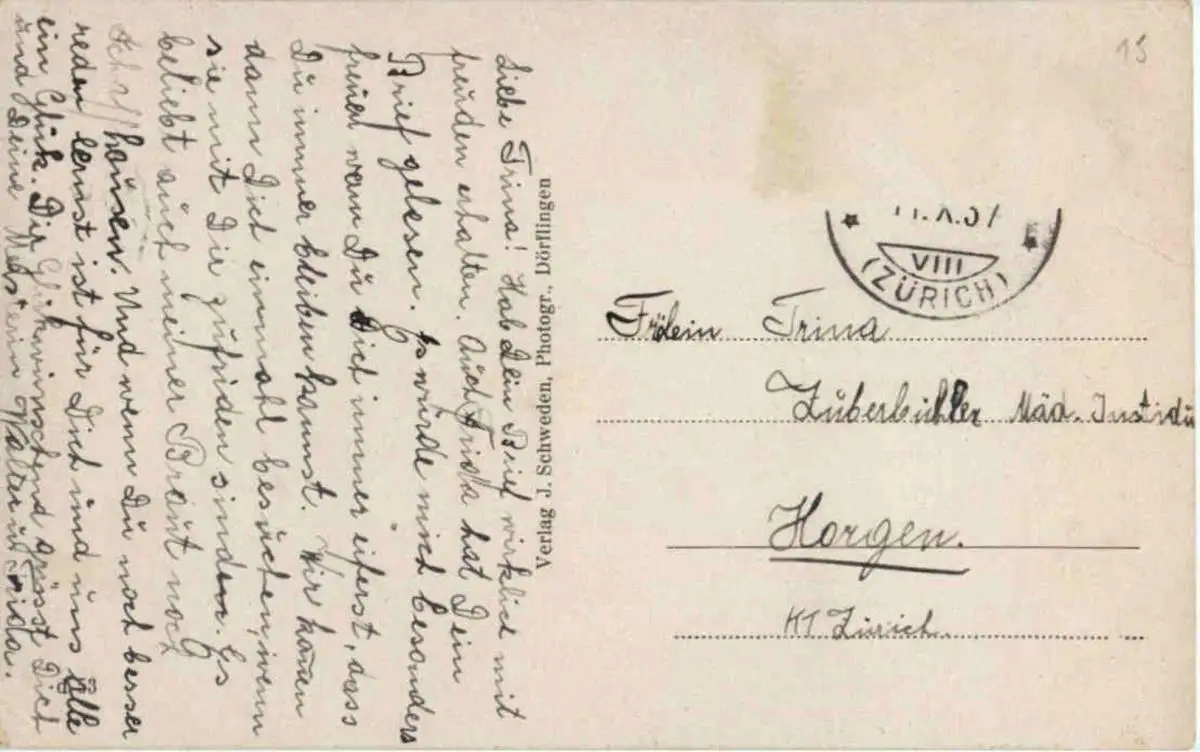 Liebe Trina! Hab Dein Brief wirklich mit
freuden erhalten. Auch Frida hat Dein
Brief gelesen. Es würde mich besonders
freuen wann Du Dich immer eiferst, dass
Du immer bleiben kannst. Wir kommen
dann Dich einmahl besuchen, wenn
sie mit Dir zufriden sind. Es
beliebt auch meiner Braut noch
hausen. Und wenn Du noch besser
reden lernst ist für Dich und uns alle
ein Glük. Dir Glükwinschend grüsst Dich
und Deine Walter u. Frida.
Verlag J. Schweden, Photogr., Dörflingen
15
11.X.37
VIII
(ZÜRICH)
Frölein Trina
Zuberbühler Mäd. Institu
Horgen.
KT Zürich.